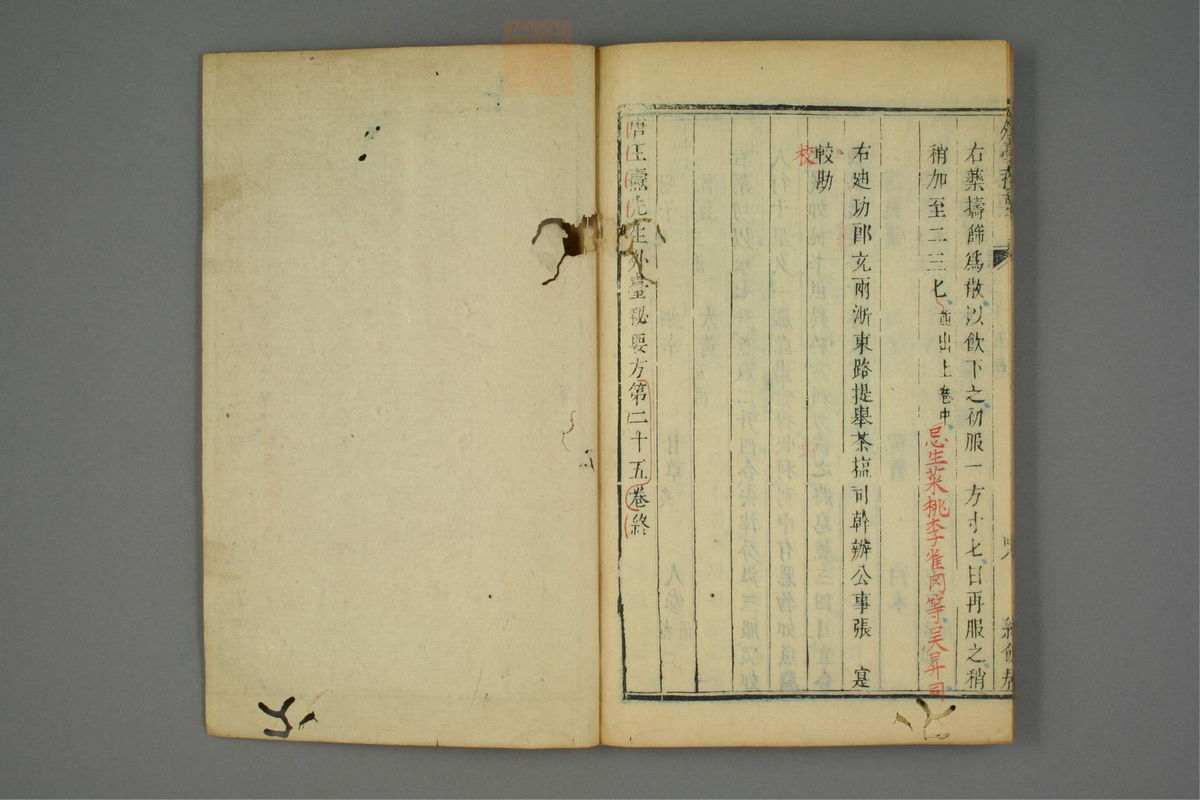 右藥擣篩爲散以飲下之初服一方寸匕日再服之稍
稍加至二三匕並出上卷中
忌生菜桃李雀肉等吳昇同
右迪功郎充兩浙東路提舉茶塩司幹辦公事張 寔
較勘
校
唐王燾先生外臺秘要方第二十五卷終